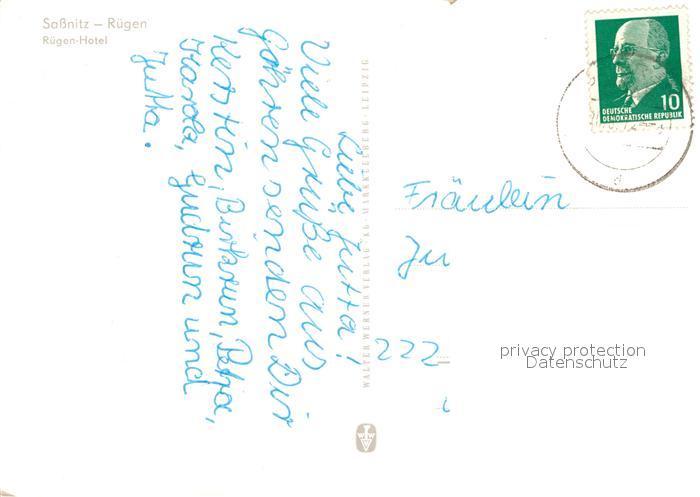 Saßnitz – Rügen
Rügen-Hotel
Liebe Jutta!
Viele Grüße aus
Göhren senden Dir
Kerstin, Birtraun, Petra,
Karola, Gudrun und
Jutta.
WALTER WERNER VERLAG KG · MARKKLEEBERG-LEIPZIG
WWV
10
DEUTSCHE
DEMOKRATISCHE REPUBLIK
Fräulein
Ju
222
privacy protection
Datenschutz